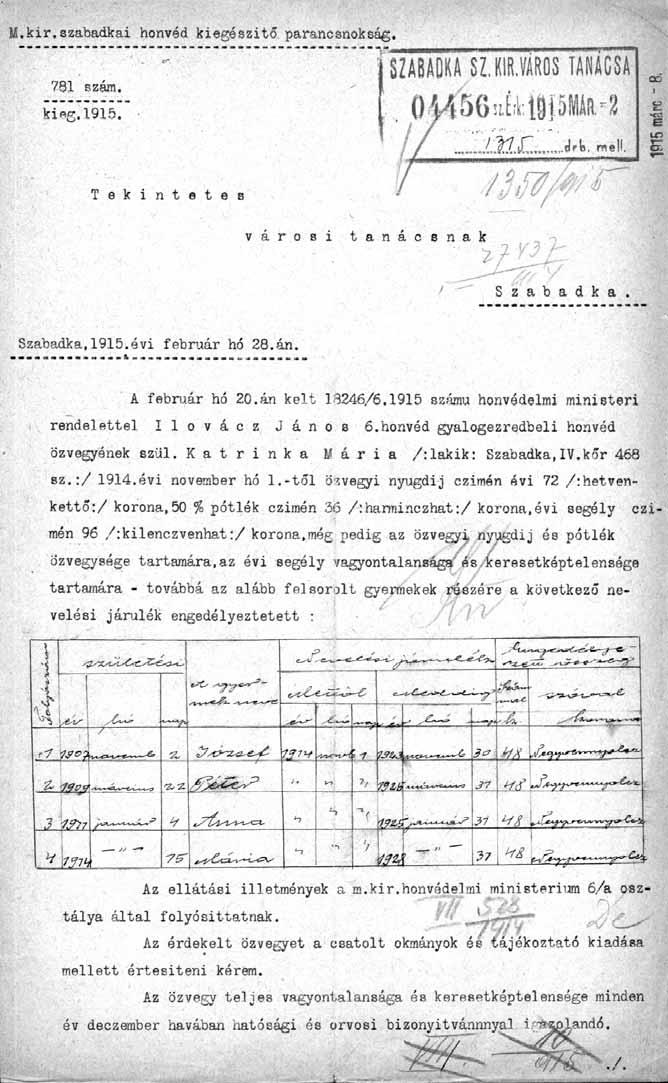 M.kir.szabadkai honvéd kiegészitő parancsnokság.
781 szám.
kieg.1915.
SZABADKA SZ.KIR.VÁROS TANÁCSA
04456 sz. Érk. 1915 MÁR.-2
drb. mell.
1915 márc - 8.
1350/915
Tekintetes
városi tanácsnak
27437
Szabadka.
Szabadka,1915.évi február hó 28.án.
A február hó 20.án kelt 18246/6.1915 számu honvédelmi ministeri
rendelettel Ilovácz János 6.honvéd gyalogezredbeli honvéd
özvegyének szül. Katrinka Mária /:lakik: Szabadka,IV.kőr 468
sz.:/ 1914.évi november hó 1.-től özvegyi nyugdij czimén évi 72 /:hetven-
kettő:/ korona,50 % pótlék czimén 36 /:harminczhat:/ korona,évi segély czi-
mén 96 /:kilenczvenhat:/ korona,még pedig az özvegyi nyugdij és pótlék
özvegysége tartamára,az évi segély vagyontalansága és keresetképtelensége
tartamára - továbbá az alább felsorolt gyermekek részére a következő ne-
velési járulék engedélyeztetett :
Folyószám születési A gyer-mek neve Nevelési járulék
év hó nap élettől év hó nap év hó nap szóval korona
1 1907 novemb 2 József 1914 nov 1 1923 novemb 30 48 Negyvennyolcz
2 1909 március 22 Péter " " " 1925 március 31 48 Negyvennyolcz
3 1911 január 4 Anna " " " 1925 január 31 48 Negyvennyolcz
4 1914 -"- 15 Mária " " " 1928 -"- 31 48 Negyvennyolcz
Az ellátási illetmények a m.kir.honvédelmi ministerium 6/a osz-
tálya által folyósittatnak.
VII 528/1914
Az érdekelt özvegyet a csatolt okmányok és tájékoztató kiadása
mellett értesiteni kérem.
Az özvegy teljes vagyontalansága és keresetképtelensége minden
év deczember havában hatósági és orvosi bizonyitvánnnyal igazolandó.
VIII. 10/915
./.